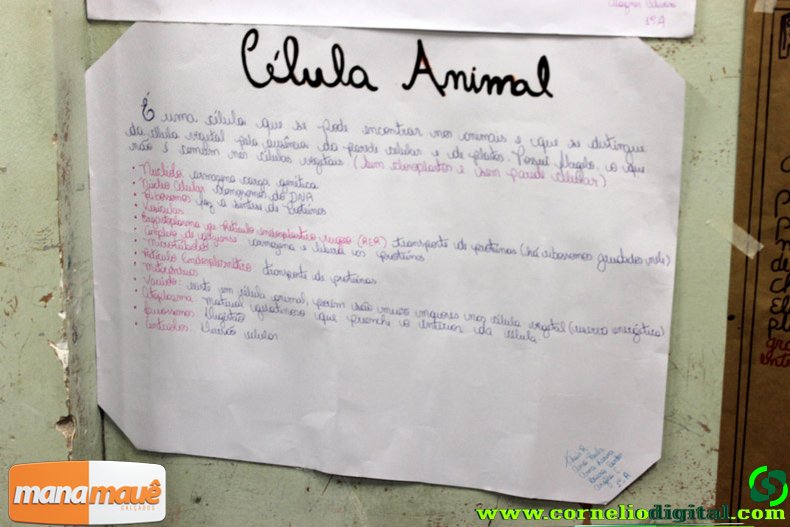 1º A
Célula Animal
É uma célula que se pode encontrar nos animais e que se distingue
da célula vegetal pela ausência da parede celular e de plastos. Possui flagelo, o que
não é comum nas células vegetais (sem cloroplastos e sem parede celular)
• Nucléolo: armazena carga genética
• Núcleo Celular: Cromossomos do DNA
• Ribossomos: faz a síntese de Proteínas
• Vesículas
• Ergastoplasma ou Retículo endoplasmático rugoso (RER) transporte de proteínas (há ribossomos grudados nele)
• Complexo de golgiense: armazena e libera as proteínas
• Microtúbulos
• Retículo Endoplasmático transporte de proteínas
• Mitocôndrias
• Vacúolo: existe em célula animal, porém são muito maiores nas célula vegetal (reserva energética)
• Citoplasma: Material gelatinoso que preenche o interior da célula.
• Lisossomos: Digestão
• Centríolos: Divisão celular.
Ana
1º A
manamauê
CALÇADOS
www.corneliodigital.com